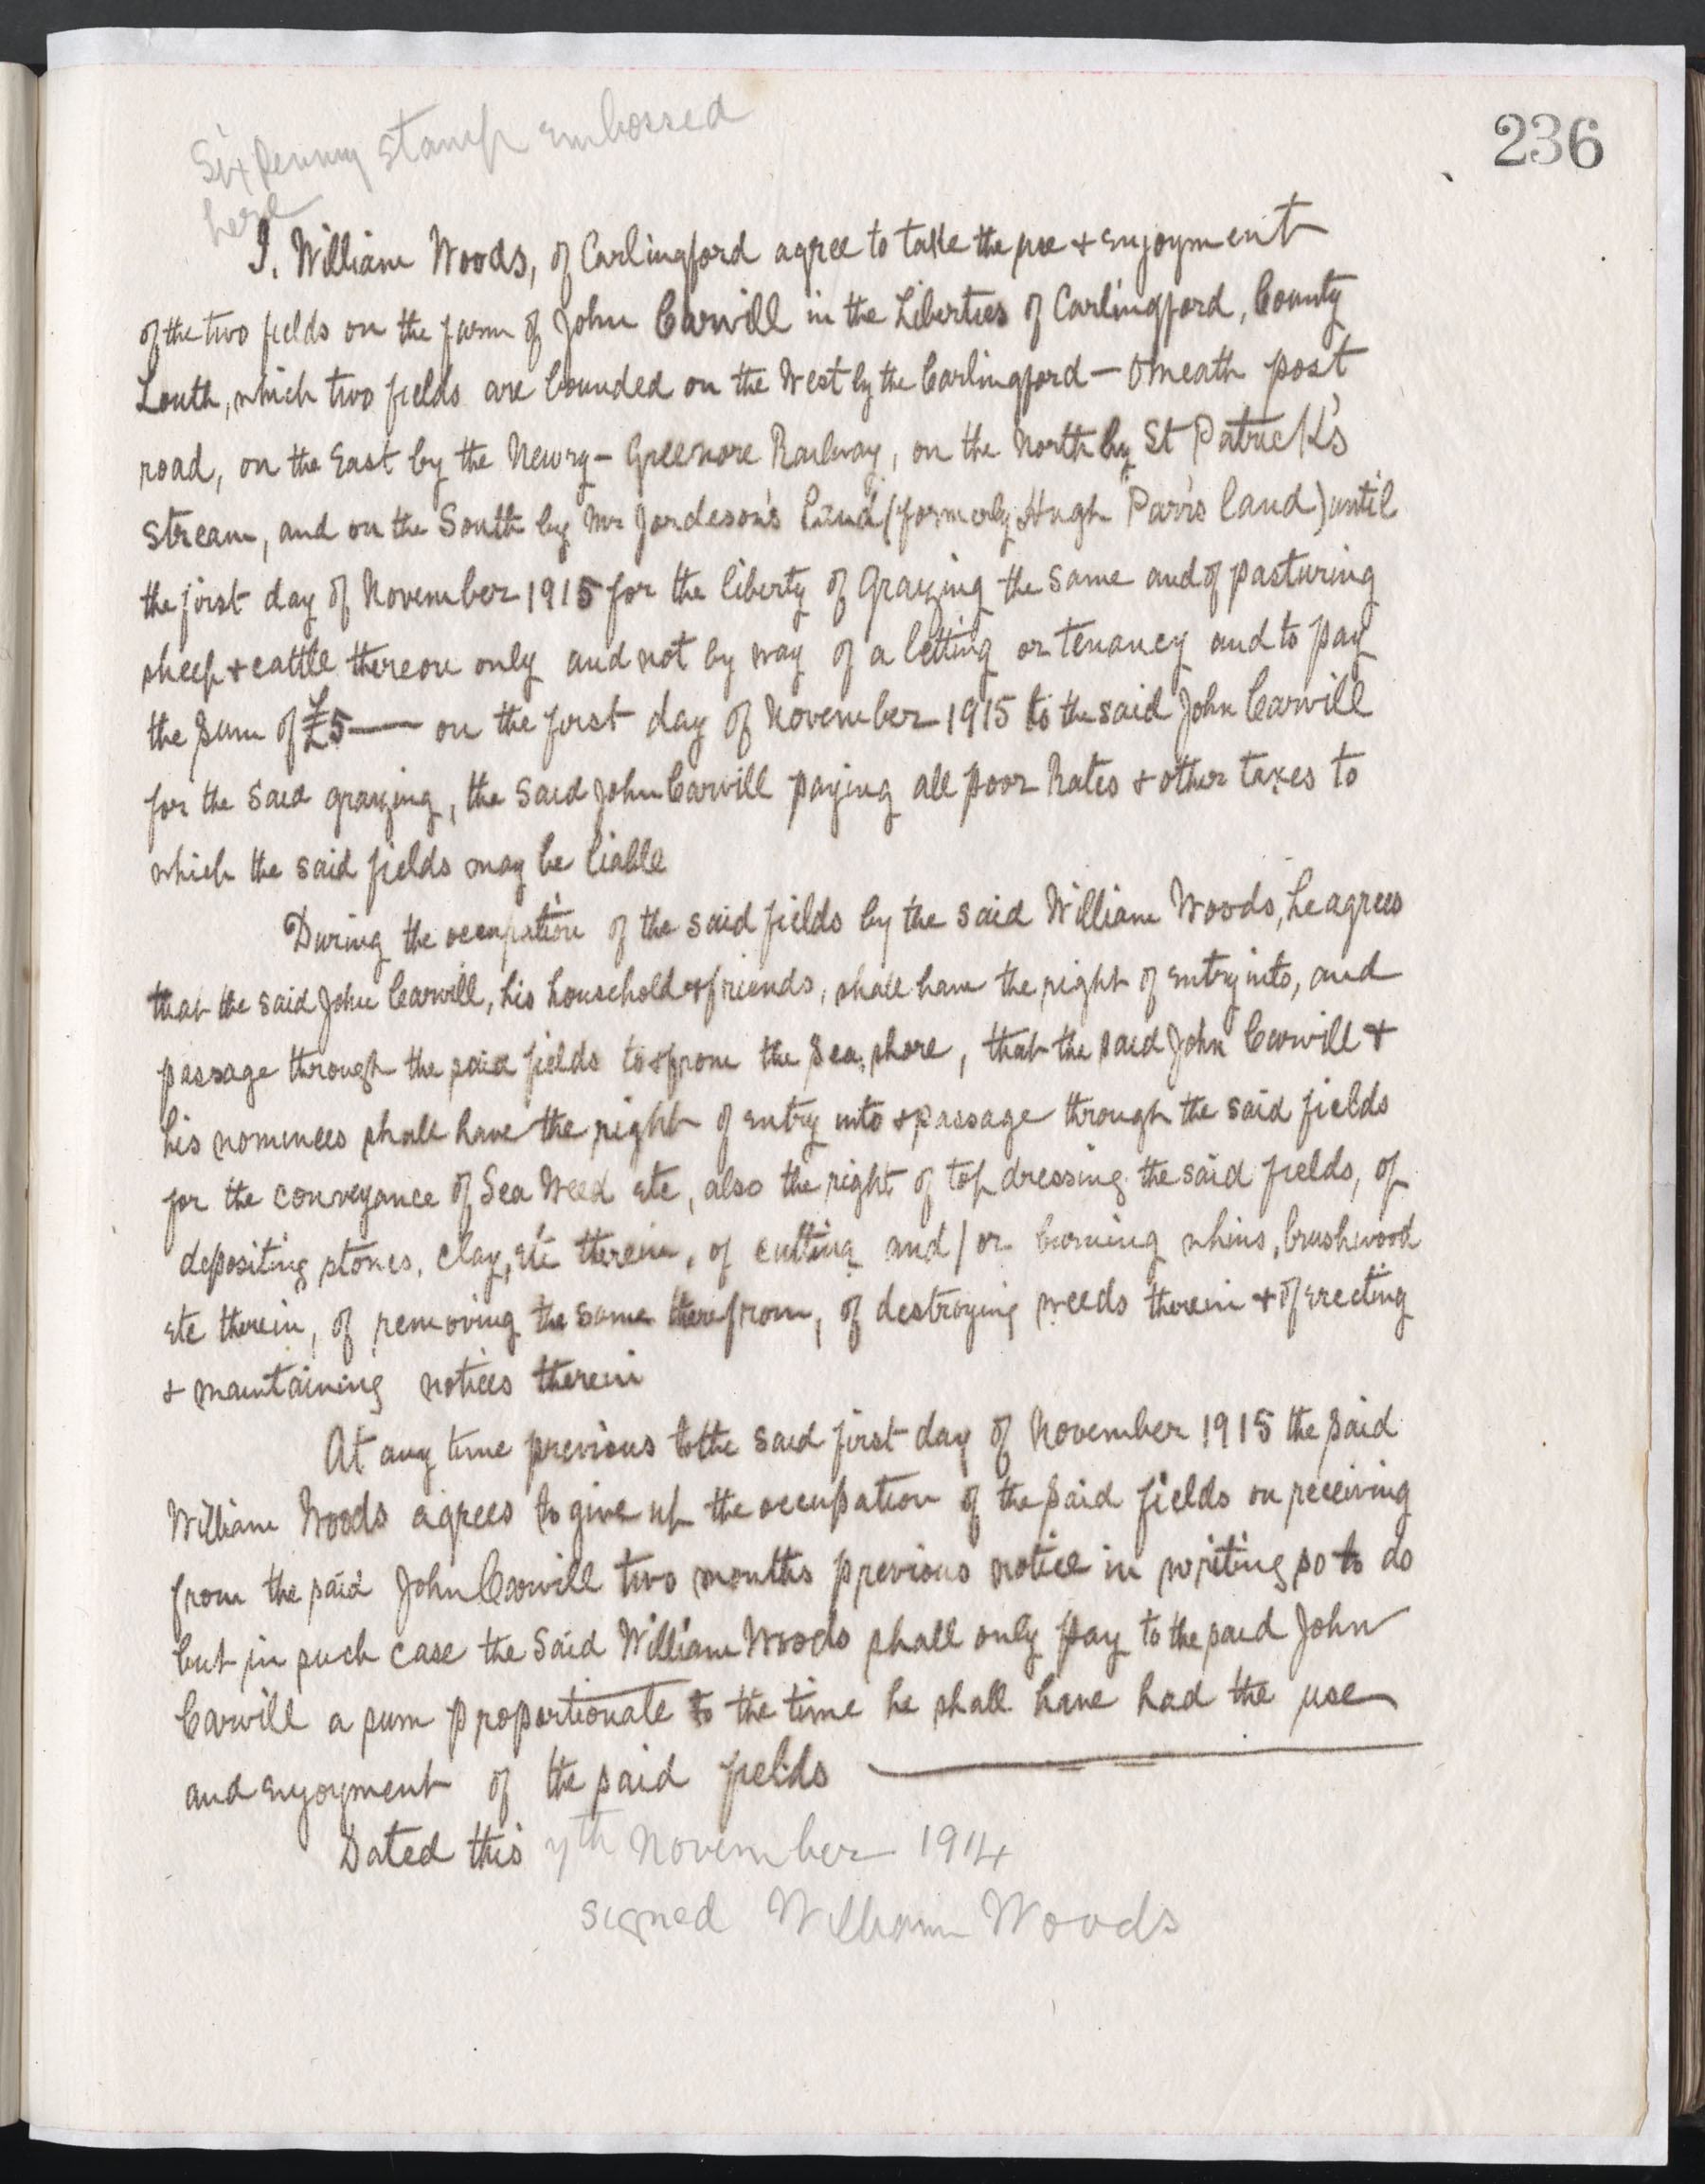 236
Six penny stamp embossed
here
I, William Woods, of Carlingford agree to take the use + enjoyment
of the two fields on the farm of John Carvill in the Liberties of Carlingford, County
Louth, which two fields are bounded on the West by the Carlingford - Omeath post
road, on the East by the Newry - Greenore Railway, on the North by St Patrick's
stream, and on the South by Mr Jordeson's land (formerly Hugh Parr's land) until
the first day of November 1915 for the liberty of Grazing the same and of pasturing
sheep + cattle thereon only and not by way of a letting or tenancy and to pay
the sum of £5 — on the first day of November 1915 to the said John Carvill
for the said grazing, the said John Carvill paying all poor Rates + other taxes to
which the said fields may be liable
During the occupation of the said fields by the said William Woods, he agrees
that the said John Carvill, his household + friends, shall have the right of entry into, and
passage through the said fields to + from the sea shore, that the said John Carvill +
his nominees shall have the right of entry into + passage through the said fields
for the conveyance of Sea Weed etc, also the right of top dressing the said fields, of
depositing stones, clay, etc therein, of cutting and/or burning whins, brushwood
etc therein, of removing the same therefrom, of destroying weeds therein + of erecting
+ maintaining notices therein
At any time previous to the said first day of November 1915 the said
William Woods agrees to give up the occupation of the said fields on receiving
from the said John Carvill two months previous notice in writing so to do
but in such case the said William Woods shall only pay to the said John
Carvill a sum proportionate to the time he shall have had the use
and enjoyment of the said fields —
Dated this 7th November 1914
signed William Woods